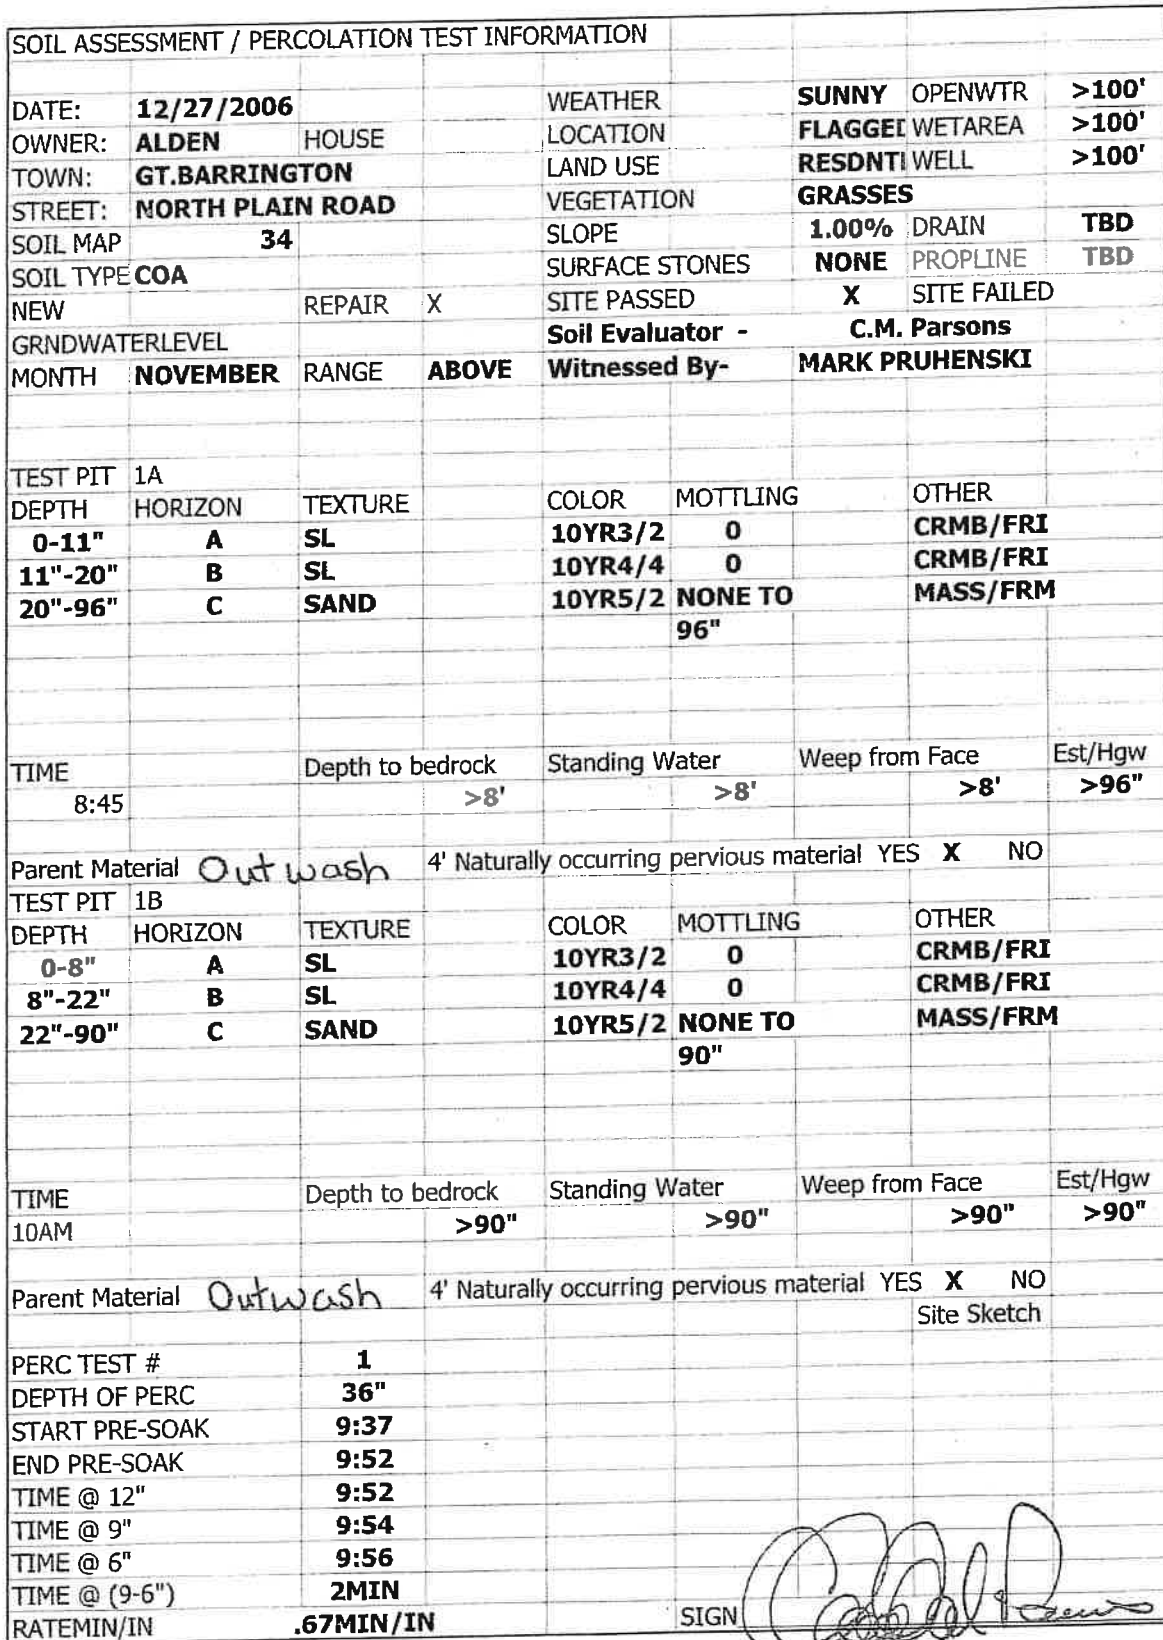 SOIL ASSESSMENT / PERCOLATION TEST INFORMATION
DATE: 12/27/2006 WEATHER SUNNY OPENWTR >100'
OWNER: ALDEN HOUSE LOCATION FLAGGED WETAREA >100'
TOWN: GT.BARRINGTON LAND USE RESDNTI WELL >100'
STREET: NORTH PLAIN ROAD VEGETATION GRASSES
SOIL MAP 34 SLOPE 1.00% DRAIN TBD
SOIL TYPE COA SURFACE STONES NONE PROPLINE TBD
NEW REPAIR X SITE PASSED X SITE FAILED
GRNDWATERLEVEL Soil Evaluator - C.M. Parsons
MONTH NOVEMBER RANGE ABOVE Witnessed By- MARK PRUHENSKI
TEST PIT 1A
DEPTH HORIZON TEXTURE COLOR MOTTLING OTHER
0-11" A SL 10YR3/2 0 CRMB/FRI
11"-20" B SL 10YR4/4 0 CRMB/FRI
20"-96" C SAND 10YR5/2 NONE TO MASS/FRM
96"
TIME Depth to bedrock Standing Water Weep from Face Est/Hgw
8:45 >8' >8' >8' >96"
Parent Material Outwash 4' Naturally occurring pervious material YES X NO
TEST PIT 1B
DEPTH HORIZON TEXTURE COLOR MOTTLING OTHER
0-8" A SL 10YR3/2 0 CRMB/FRI
8"-22" B SL 10YR4/4 0 CRMB/FRI
22"-90" C SAND 10YR5/2 NONE TO MASS/FRM
90"
TIME Depth to bedrock Standing Water Weep from Face Est/Hgw
10AM >90" >90" >90" >90"
Parent Material Outwash 4' Naturally occurring pervious material YES X NO
Site Sketch
PERC TEST # 1
DEPTH OF PERC 36"
START PRE-SOAK 9:37
END PRE-SOAK 9:52
TIME @ 12" 9:52
TIME @ 9" 9:54
TIME @ 6" 9:56
TIME @ (9-6") 2MIN
RATEMIN/IN .67MIN/IN SIGN